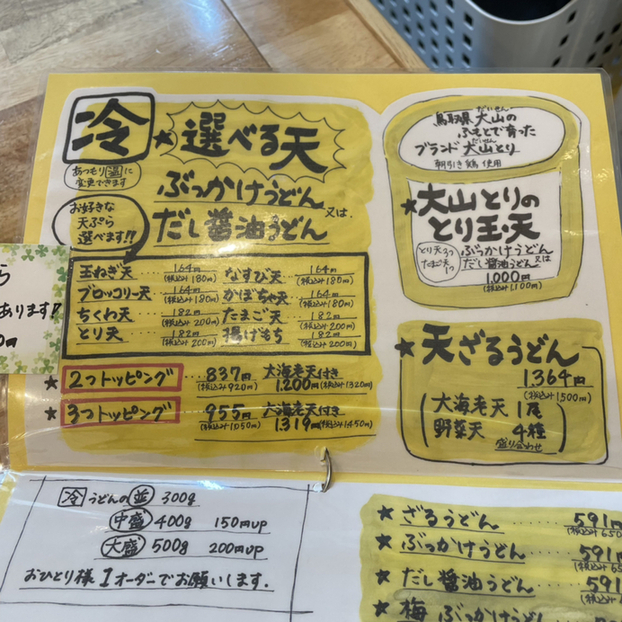 冷
★選べる天
あつもり温に
変更できます
ぶっかけうどん
又は、
だし醤油うどん
お好きな
天ぷら
選べます!!
玉ねぎ天 164円 (税込み180円) なすび天 164円 (税込み180円)
ブロッコリー天 164円 (税込み180円) かぼちゃ天 164円 (税込み180円)
ちくわ天 182円 (税込み200円) たまご天 182円 (税込み200円)
とり天 182円 (税込み200円) 揚げもち 182円 (税込み200円)
★2つトッピング 837円 (税込み920円) 大海老天付き 1,200円 (税込み1320円)
★3つトッピング 955円 (税込み1050円) 大海老天付き 1,319円 (税込み1450円)
鳥取県 大山の
だいせん
ふもとで育った
だいせん
ブランド 大山とり
朝引き鶏 使用
★大山とりの
とり玉天
とり天3つ
たまご天1つ
ぶっかけうどん
だし醤油うどん又は
1,000円
(税込み1,100円)
★天ざるうどん
1,364円
(税込み1,500円)
大海老天 1尾
野菜天 4種
盛り合わせ
ら
あります!!
0円
冷うどんの並 300g
中盛 400g 150円UP
大盛 500g 200円UP
おひとり様1オーダーでお願いします.
★ざるうどん 591円
(税込み650
★ぶっかけうどん 591円
(税込み650
★だし醤油うどん 591
(税込み65
★梅ぶっかけうどん